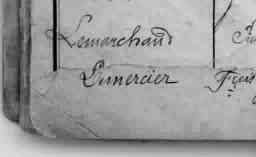 Lemarchand
Lemercier